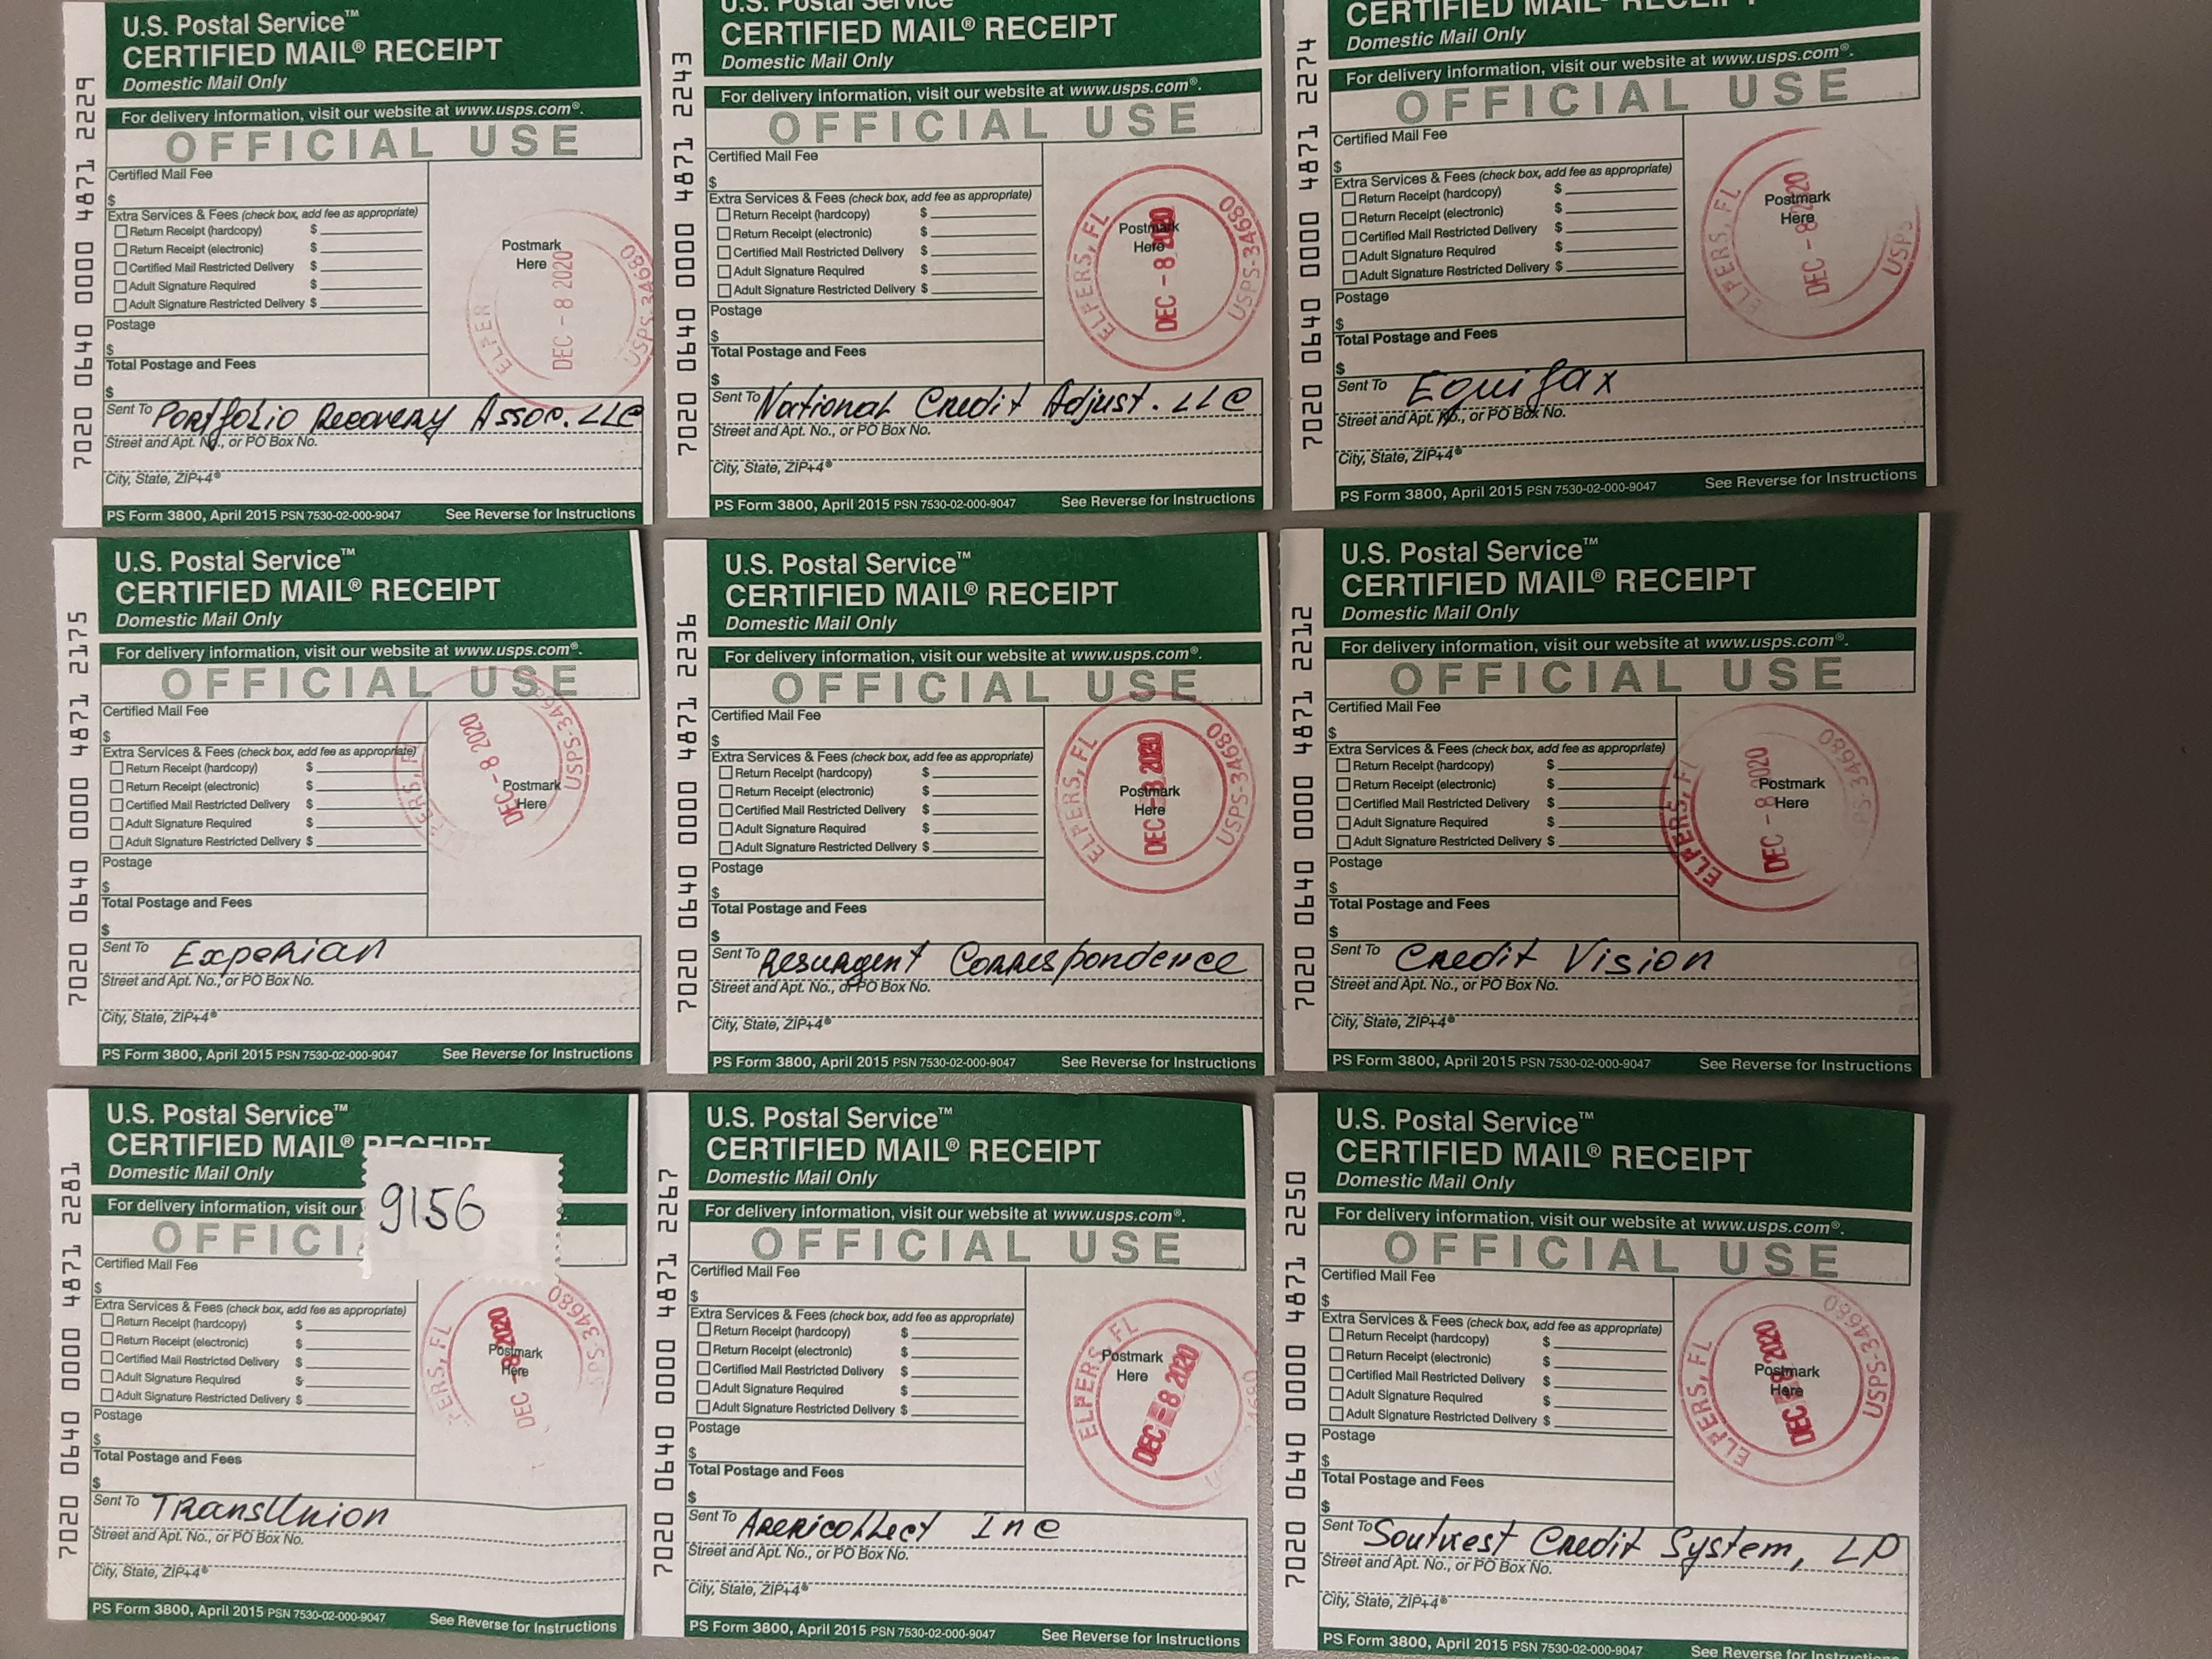 7020 0640 0000 4871 2281
U.S. Postal Service™
CERTIFIED MAIL® RECEIPT
Domestic Mail Only
For delivery information, visit our
OFFICI
9156
Certified Mail Fee
$
Extra Services & Fees (check box, add fee as appropriate)
Return Receipt (hardcopy) $
Return Receipt (electronic) $
Certified Mail Restricted Delivery $
Adult Signature Required $
Adult Signature Restricted Delivery $
Postage
$
Total Postage and Fees
$
Postmark
Here
DEC - 8 2020
Sent To TransUnion
Street and Apt. No., or PO Box No.
City, State, ZIP+4®
PS Form 3800, April 2015 PSN 7530-02-000-9047 See Reverse for Instructions
7020 0640 0000 4871 2175
U.S. Postal Service™
CERTIFIED MAIL® RECEIPT
Domestic Mail Only
For delivery information, visit our website at www.usps.com®.
OFFICIAL USE
Certified Mail Fee
$
Extra Services & Fees (check box, add fee as appropriate)
Return Receipt (hardcopy) $
Return Receipt (electronic) $
Certified Mail Restricted Delivery $
Adult Signature Required $
Adult Signature Restricted Delivery $
Postage
$
Total Postage and Fees
$
Postmark
Here
DEC - 8 2020
Sent To Experian
Street and Apt. No., or PO Box No.
City, State, ZIP+4®
PS Form 3800, April 2015 PSN 7530-02-000-9047 See Reverse for Instructions
7020 0640 0000 4871 2229
U.S. Postal Service™
CERTIFIED MAIL® RECEIPT
Domestic Mail Only
For delivery information, visit our website at www.usps.com®.
OFFICIAL USE
Certified Mail Fee
$
Extra Services & Fees (check box, add fee as appropriate)
Return Receipt (hardcopy) $
Return Receipt (electronic) $
Certified Mail Restricted Delivery $
Adult Signature Required $
Adult Signature Restricted Delivery $
Postage
$
Total Postage and Fees
$
Postmark
Here
DEC - 8 2020
USPS-34680
Sent To Portfolio Recovery Assoc. LLC
Street and Apt. No., or PO Box No.
City, State, ZIP+4®
PS Form 3800, April 2015 PSN 7530-02-000-9047 See Reverse for Instructions
7020 0640 0000 4871 2267
U.S. Postal Service™
CERTIFIED MAIL® RECEIPT
Domestic Mail Only
For delivery information, visit our website at www.usps.com®.
OFFICIAL USE
Certified Mail Fee
$
Extra Services & Fees (check box, add fee as appropriate)
Return Receipt (hardcopy) $
Return Receipt (electronic) $
Certified Mail Restricted Delivery $
Adult Signature Required $
Adult Signature Restricted Delivery $
Postage
$
Total Postage and Fees
$
Postmark
Here
ELPERS, FL
DEC - 8 2020
34680
Sent To Americollect Inc
Street and Apt. No., or PO Box No.
City, State, ZIP+4®
PS Form 3800, April 2015 PSN 7530-02-000-9047 See Reverse for Instructions
7020 0640 0000 4871 2236
U.S. Postal Service™
CERTIFIED MAIL® RECEIPT
Domestic Mail Only
For delivery information, visit our website at www.usps.com®.
OFFICIAL USE
Certified Mail Fee
$
Extra Services & Fees (check box, add fee as appropriate)
Return Receipt (hardcopy) $
Return Receipt (electronic) $
Certified Mail Restricted Delivery $
Adult Signature Required $
Adult Signature Restricted Delivery $
Postage
$
Total Postage and Fees
$
Postmark
Here
ELPERS, FL
DEC - 8 2020
USPS-34680
Sent To Resurgent Correspondence
Street and Apt. No., or PO Box No.
City, State, ZIP+4®
PS Form 3800, April 2015 PSN 7530-02-000-9047 See Reverse for Instructions
7020 0640 0000 4871 2243
U.S. Postal Service
CERTIFIED MAIL® RECEIPT
Domestic Mail Only
For delivery information, visit our website at www.usps.com®.
OFFICIAL USE
Certified Mail Fee
$
Extra Services & Fees (check box, add fee as appropriate)
Return Receipt (hardcopy) $
Return Receipt (electronic) $
Certified Mail Restricted Delivery $
Adult Signature Required $
Adult Signature Restricted Delivery $
Postage
$
Total Postage and Fees
$
Postmark
Here
ELPERS, FL
DEC - 8 2020
USPS-34680
Sent To National Credit Adjust. LLC
Street and Apt. No., or PO Box No.
City, State, ZIP+4®
PS Form 3800, April 2015 PSN 7530-02-000-9047 See Reverse for Instructions
7020 0640 0000 4871 2250
U.S. Postal Service™
CERTIFIED MAIL® RECEIPT
Domestic Mail Only
For delivery information, visit our website at www.usps.com®.
OFFICIAL USE
Certified Mail Fee
$
Extra Services & Fees (check box, add fee as appropriate)
Return Receipt (hardcopy) $
Return Receipt (electronic) $
Certified Mail Restricted Delivery $
Adult Signature Required $
Adult Signature Restricted Delivery $
Postage
$
Total Postage and Fees
$
Postmark
Here
ELPERS, FL
DEC - 8 2020
USPS-34680
Sent To Soutwest Credit System, LP
Street and Apt. No., or PO Box No.
City, State, ZIP+4®
PS Form 3800, April 2015 PSN 7530-02-000-9047 See Reverse for Instructions
7020 0640 0000 4871 2212
U.S. Postal Service™
CERTIFIED MAIL® RECEIPT
Domestic Mail Only
For delivery information, visit our website at www.usps.com®.
OFFICIAL USE
Certified Mail Fee
$
Extra Services & Fees (check box, add fee as appropriate)
Return Receipt (hardcopy) $
Return Receipt (electronic) $
Certified Mail Restricted Delivery $
Adult Signature Required $
Adult Signature Restricted Delivery $
Postage
$
Total Postage and Fees
$
Postmark
Here
ELPERS, FL
DEC - 8 2020
PS-34680
Sent To Credit Vision
Street and Apt. No., or PO Box No.
City, State, ZIP+4®
PS Form 3800, April 2015 PSN 7530-02-000-9047 See Reverse for Instructions
7020 0640 0000 4871 2274
CERTIFIED MAIL® RECEIPT
Domestic Mail Only
For delivery information, visit our website at www.usps.com®.
OFFICIAL USE
Certified Mail Fee
$
Extra Services & Fees (check box, add fee as appropriate)
Return Receipt (hardcopy) $
Return Receipt (electronic) $
Certified Mail Restricted Delivery $
Adult Signature Required $
Adult Signature Restricted Delivery $
Postage
$
Total Postage and Fees
$
Postmark
Here
ELPERS, FL
DEC - 8 2020
USPS
Sent To Equifax
Street and Apt. No., or PO Box No.
City, State, ZIP+4®
PS Form 3800, April 2015 PSN 7530-02-000-9047 See Reverse for Instructions